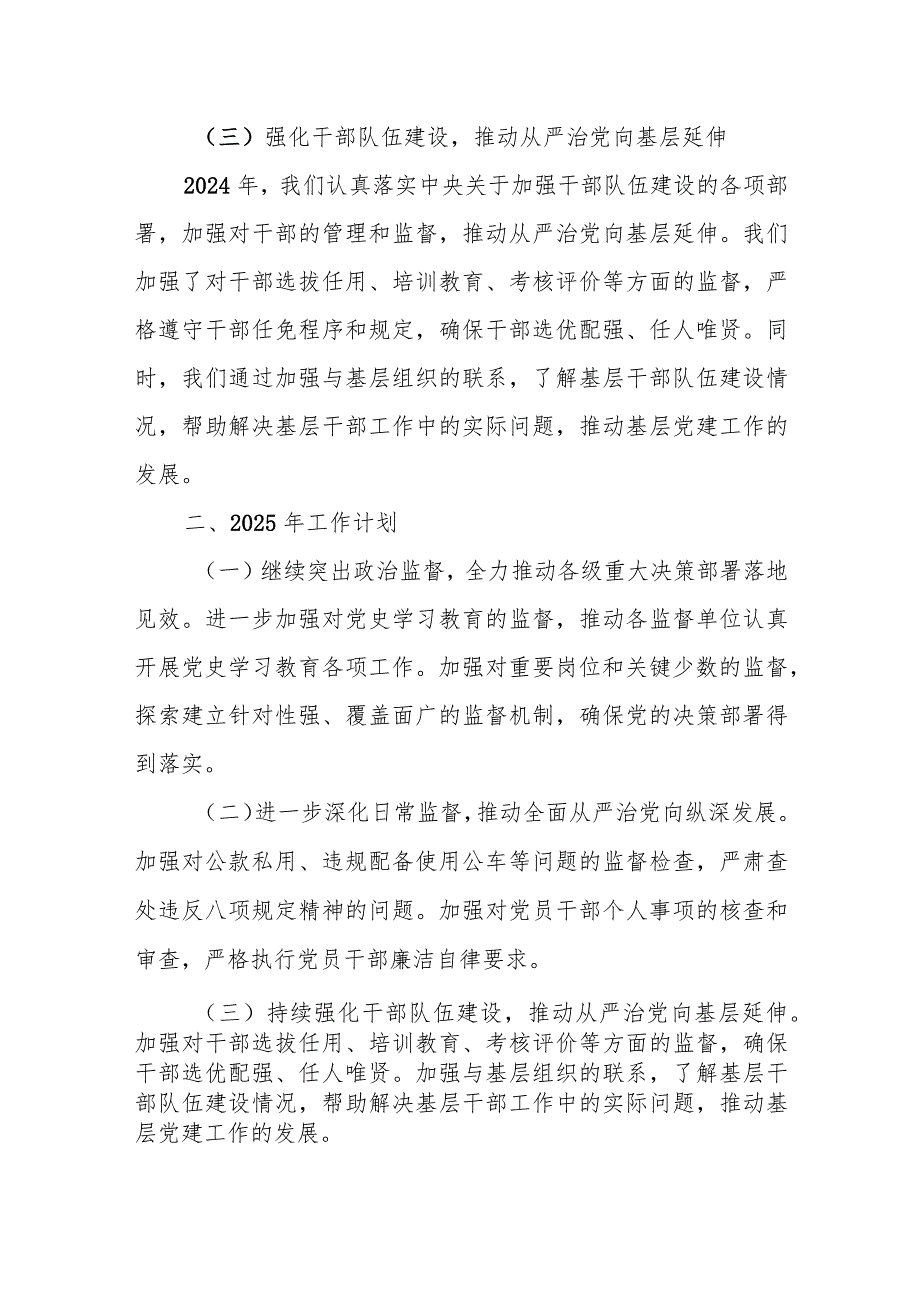 （三）强化干部队伍建设，推动从严治党向基层延伸
2024 年，我们认真落实中央关于加强干部队伍建设的各项部
署，加强对干部的管理和监督，推动从严治党向基层延伸。我们
加强了对干部选拔任用、培训教育、考核评价等方面的监督，严
格遵守干部任免程序和规定，确保干部选优配强、任人唯贤。同
时，我们通过加强与基层组织的联系，了解基层干部队伍建设情
况，帮助解决基层干部工作中的实际问题，推动基层党建工作的
发展。
二、2025 年工作计划
（一）继续突出政治监督，全力推动各级重大决策部署落地
见效。进一步加强对党史学习教育的监督，推动各监督单位认真
开展党史学习教育各项工作。加强对重要岗位和关键少数的监督，
探索建立针对性强、覆盖面广的监督机制，确保党的决策部署得
到落实。
（二）进一步深化日常监督，推动全面从严治党向纵深发展。
加强对公款私用、违规配备使用公车等问题的监督检查，严肃查
处违反八项规定精神的问题。加强对党员干部个人事项的核查和
审查，严格执行党员干部廉洁自律要求。
（三）持续强化干部队伍建设，推动从严治党向基层延伸。
加强对干部选拔任用、培训教育、考核评价等方面的监督，确保
干部选优配强、任人唯贤。加强与基层组织的联系，了解基层干
部队伍建设情况，帮助解决基层干部工作中的实际问题，推动基
层党建工作的发展。